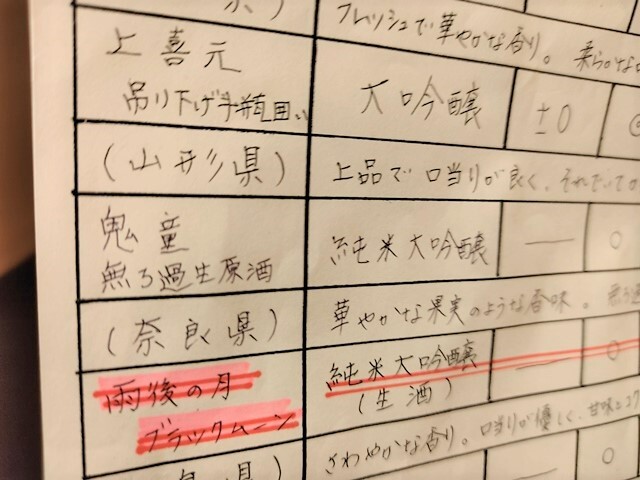 フレッシュで華やかな香り。柔らかな
上喜元
吊り下げ斗瓶囲い
大吟醸
±0
(山形県)
上品で口当りが良く、それでいて
鬼童
無ろ過生原酒
純米大吟醸
—
○
(奈良県)
華やかな果実のような香味。
雨後の月
ブラックムーン
純米大吟醸
(生酒)
—
○
県)
さわやかな香り。口当りが優しく、甘味と
—
○